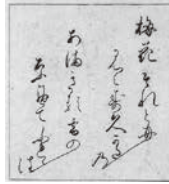 梅花それとも
見えす久かた
乃
あまきる雪の
なへてふれ
は